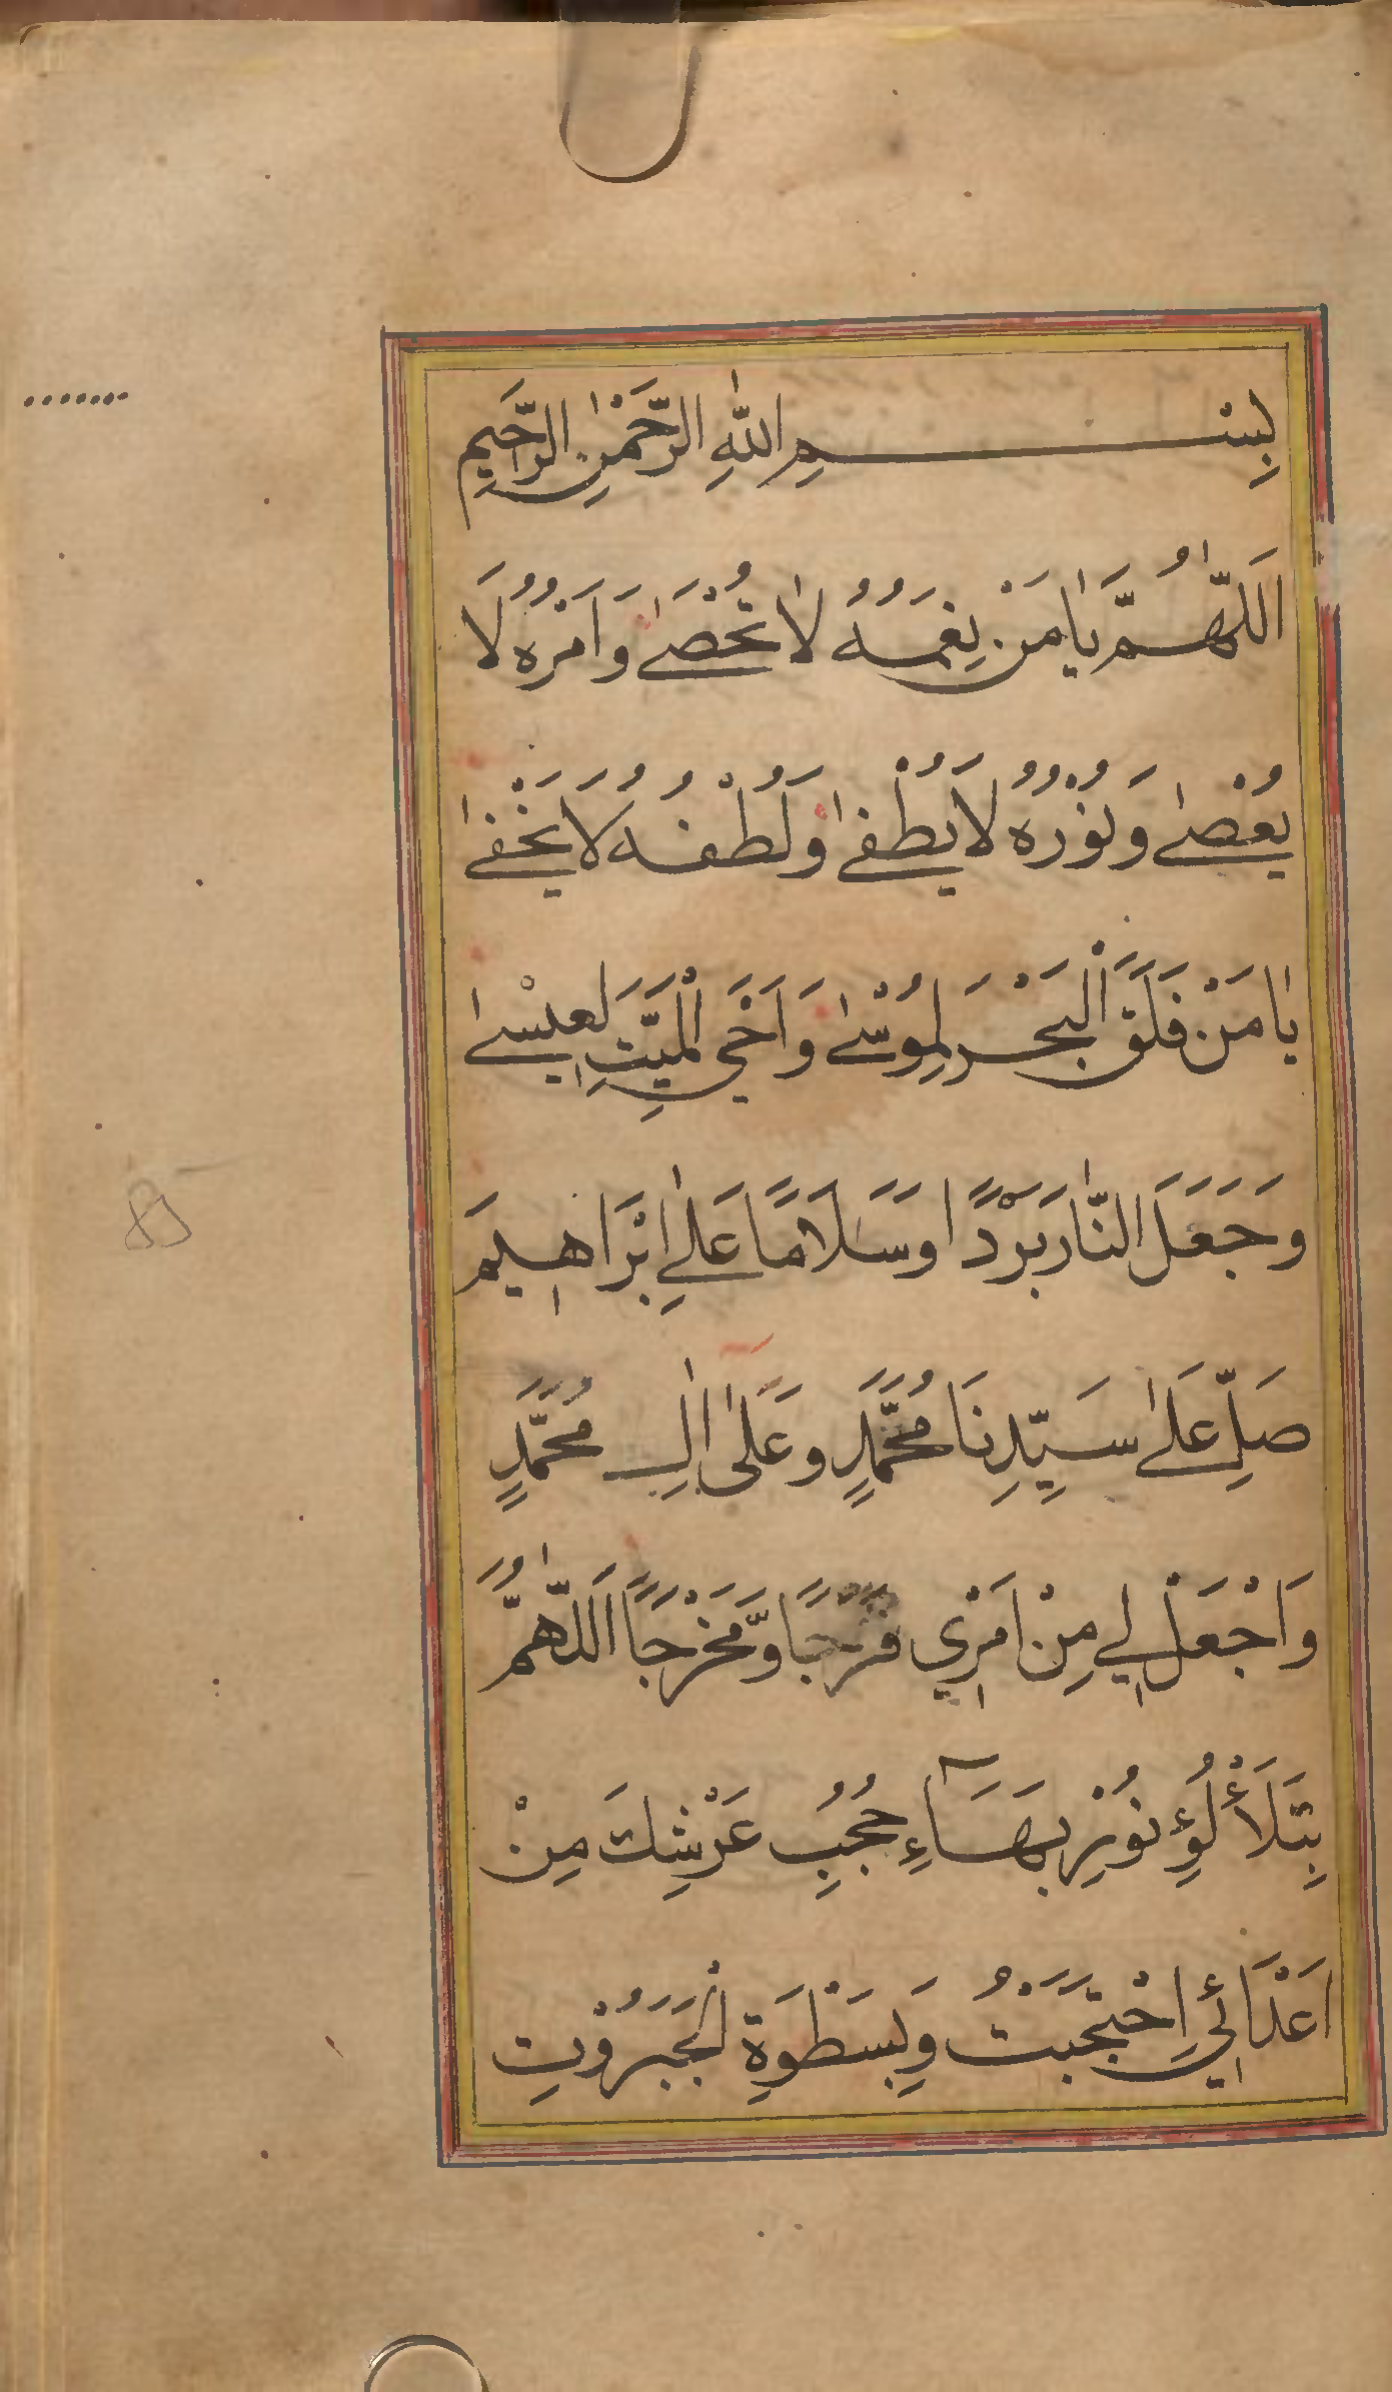 بِسْمِ اللهِ الرَّحْمٰنِ الرَّحِيمِ
اَللّٰهُمَّ يَا مَنْ نِعَمُهُ لَا تُحْصٰى وَاَمْرُهُ لَا
يُعْصٰى وَنُوْرُهُ لَا يُطْفٰى وَلُطْفُهُ لَا يَخْفٰى
يَا مَنْ فَلَقَ الْبَحْرَ لِمُوْسٰى وَاَحْيَ الْمَيِّتَ لِعِيْسٰى
وَجَعَلَ النَّارَ بَرْدًا وَسَلَامًا عَلٰى اِبْرَاهِيمَ
صَلِّ عَلٰى سَيِّدِنَا مُحَمَّدٍ وَعَلٰى اٰلِ مُحَمَّدٍ
وَاجْعَلْ لِي مِنْ اَمْرِي فَرَجًا وَّمَخْرَجًا اَللّٰهُمَّ
بِتَلَأْلُؤِ نُوْرِ بَهَآءِ حُجُبِ عَرْشِكَ مِنْ
اَعْدَائِي اِحْتَجَبْتُ وَبِسَطْوَةِ الْجَبَرُوْتِ